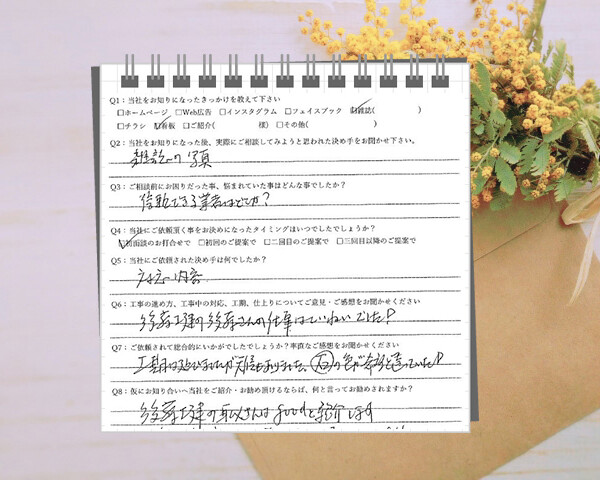 Q1：当社をお知りになったきっかけを教えて下さい
□ホームページ □Web広告 □インスタグラム □フェイスブック ☑雑誌( )
□チラシ ☑看板 □ご紹介( 様) □その他( )
Q2：当社をお知りになった後、実際にご相談してみようと思われた決め手をお聞かせ下さい。
雑誌の写真
Q3：ご相談前にお困りだった事、悩まれていた事はどんな事でしたか？
信頼できる業者はどこか？
Q4：当社にご依頼頂く事をお決めになったタイミングはいつでしたでしょうか？
☑初面談のお打合せで □初回のご提案で □二回目のご提案で □三回目以降のご提案で
Q5：当社にご依頼された決め手は何でしたか？
内容
Q6：工事の進め方、工事中の対応、工期、仕上りについてご意見・ご感想をお聞かせください
さんの仕事はていねいでした
Q7：ご依頼されて総合的にいかがでしたでしょうか？率直なご感想をお聞かせください
工期は天候もありました、石の色が
Q8：仮にお知り合いへ当社をご紹介・お勧め頂けるならば、何と言ってお勧めされますか？
さんはgoodと紹介します